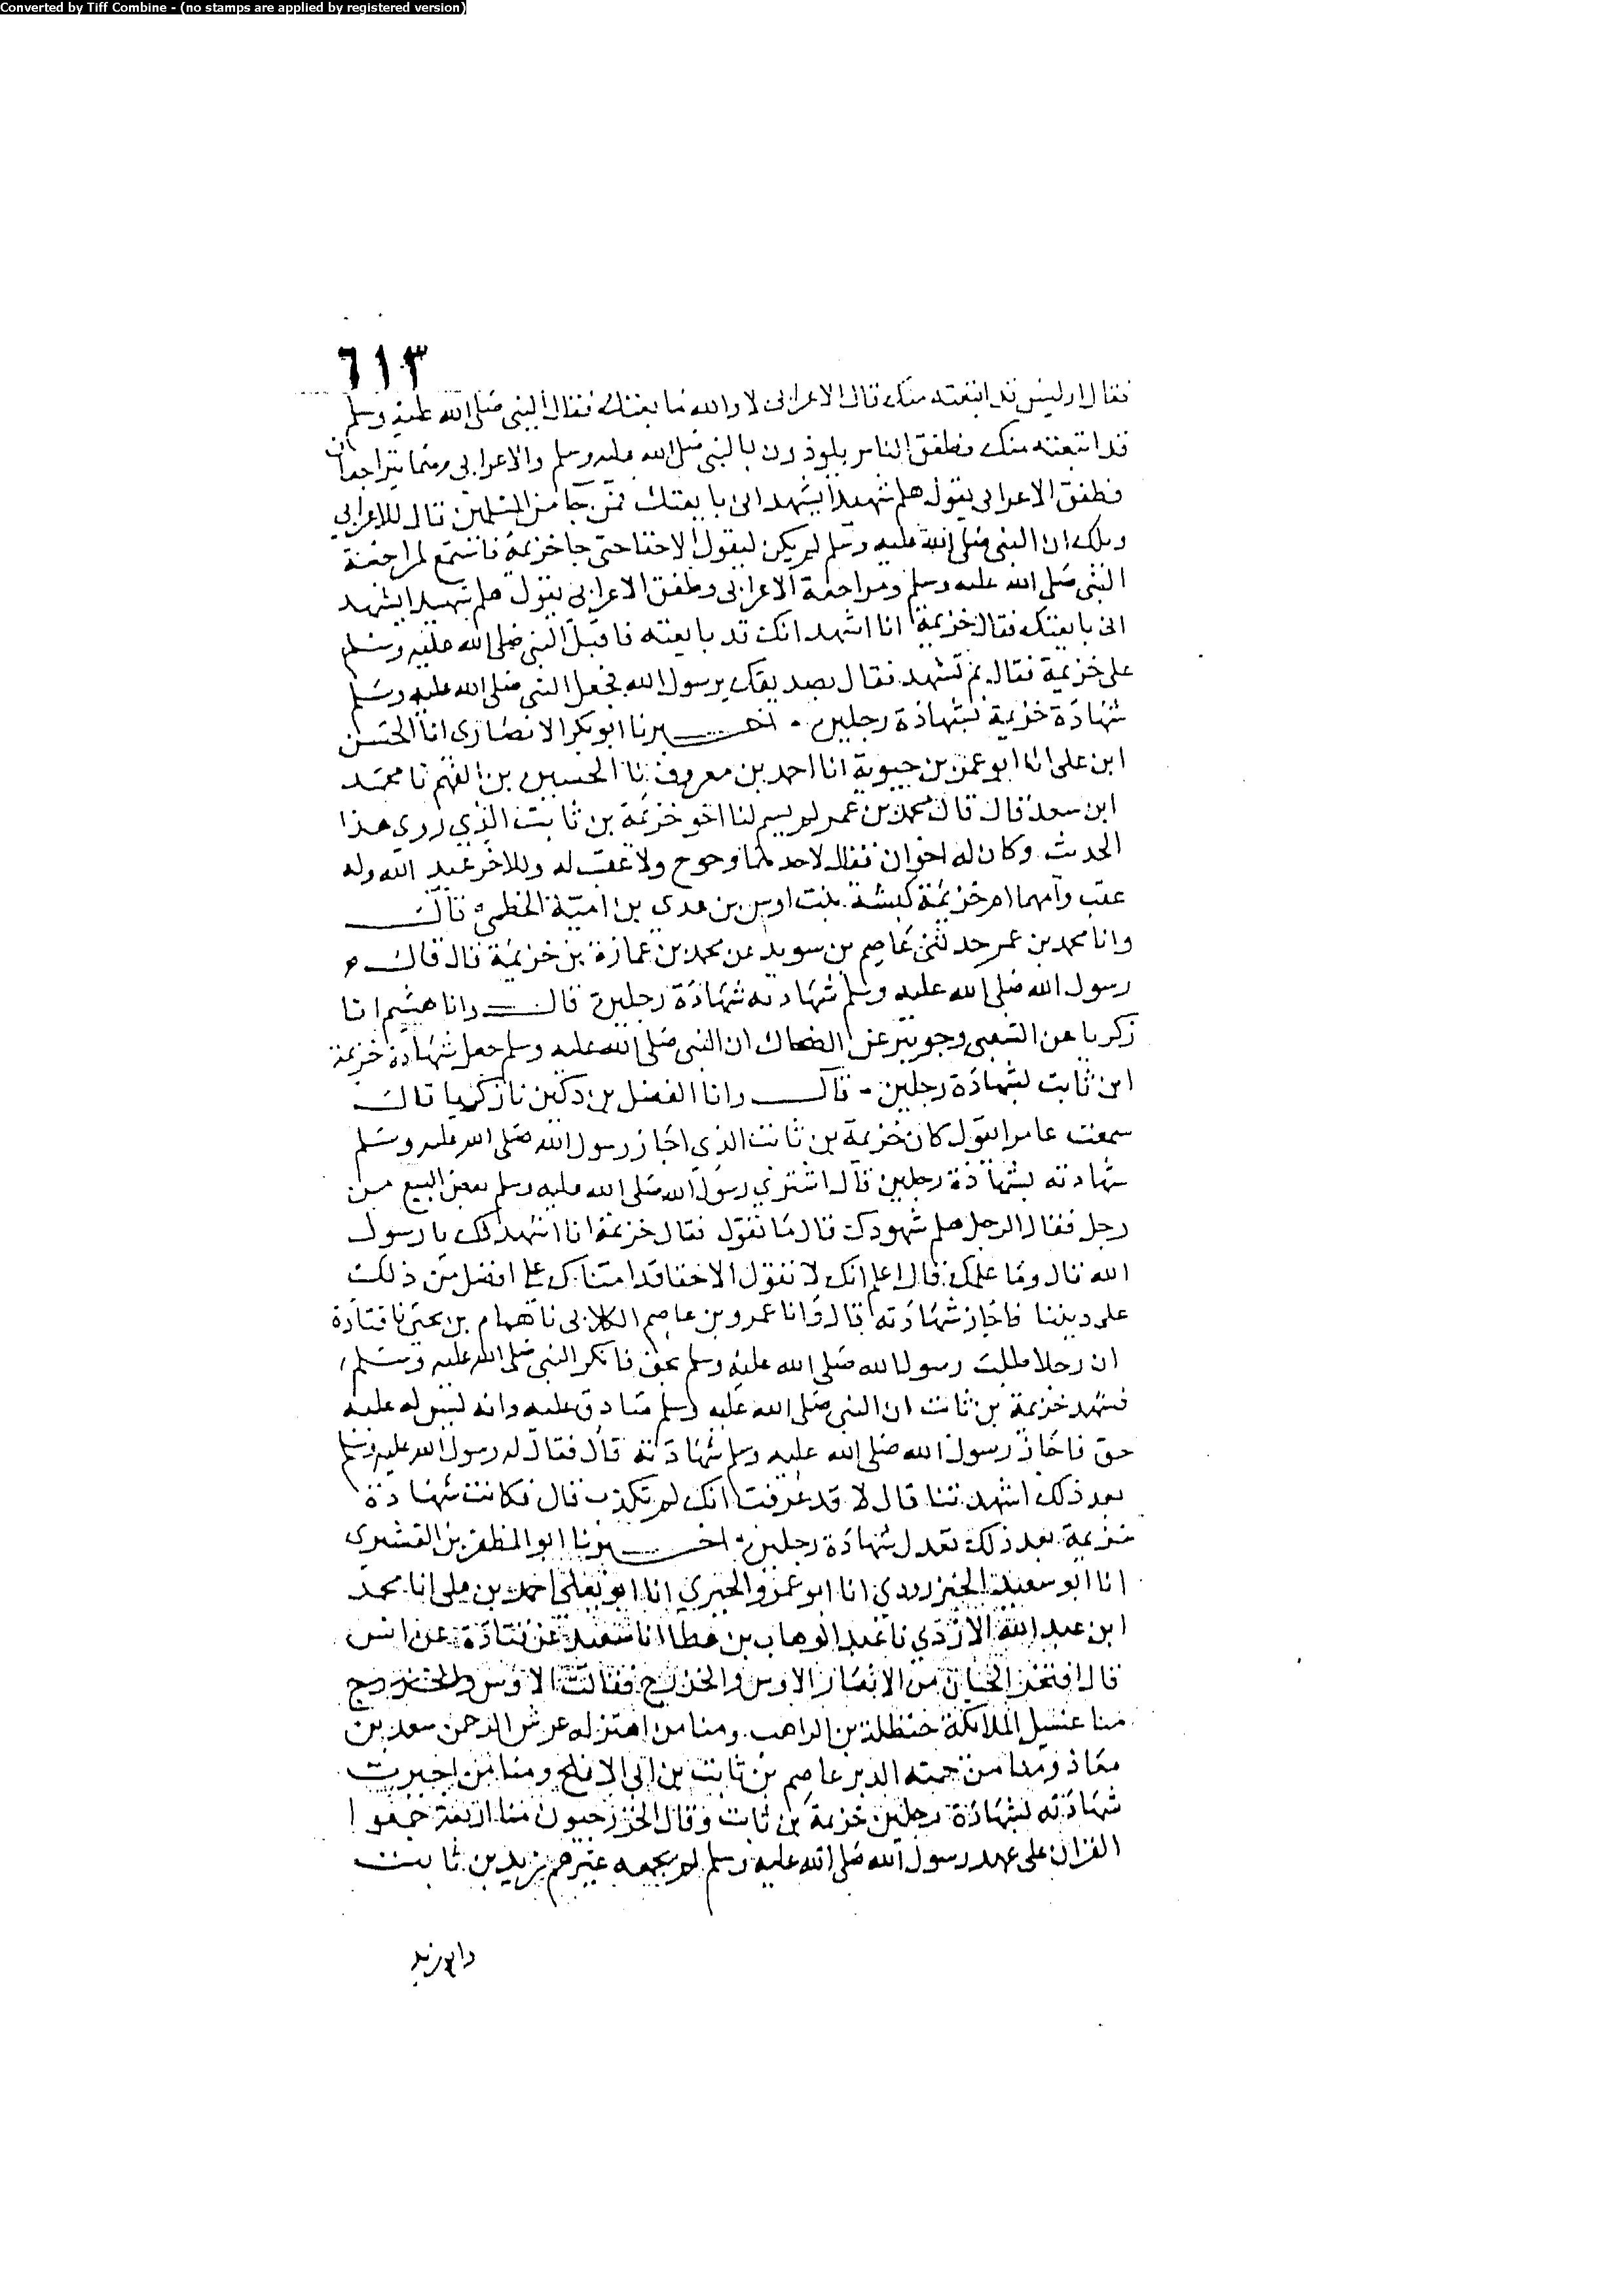 Converted by Tiff Combine - (no stamps are applied by registered version)
٦١٣
فقال اوليس قد ابتعته منك قال الاعرابي لا والله ما بعتك فقال النبي صلى الله عليه وسلم
قد ابتعته منك فطفق الناس يلوذون بالنبي صلى الله عليه وسلم والاعرابي وهما يتراجعان
فطفق الاعرابي يقول هلم شهيدا يشهد اني بايعتك فمن جا من المسلمين قال للاعرابي
ويلك ان النبي صلى الله عليه وسلم لم يكن ليقول الا حقا حتى جا خزيمة فاستمع لمراجعة
النبي صلى الله عليه وسلم ومراجعة الاعرابي وطفق الاعرابي يقول هلم شهيدا يشهد
اني بايعتك فقال خزيمة انا اشهد انك قد بايعته فاقبل النبي صلى الله عليه وسلم
على خزيمة فقال بم تشهد فقال بصديقك يرسول الله فجعل النبي صلى الله عليه وسلم
شهادة خزيمة بشهادة رجلين - اخبرنا ابو بكر الانصاري انا الحسن
ابن علي انا ابو عمر بن حيوية انا احمد بن معروف نا الحسين بن الفهم نا محمد
ابن سعد قال قال محمد بن عمر لم يسم لنا اخو خزيمة بن ثابت الذي روى هذا
الحديث وكان له اخوان فقال لاحدهما وحوح ولا عقب له وللاخر عبد الله وله
عقب وامهما ام خزيمة كبشة بنت اوس بن عدي بن امية الخطمي قال
وانا محمد بن عمر حدثني عاصم بن سويد عن محمد بن عمارة بن خزيمة قال قال
رسول الله صلى الله عليه وسلم شهادته شهادة رجلين قال وانا هشيم انا
زكريا عن الشعبي وجويبر عن الضحاك ان النبي صلى الله عليه وسلم جعل شهادة خزيمة
ابن ثابت بشهادة رجلين - قال وانا الفضل بن دكين نا زكريا قال
سمعت عامرا يقول كان خزيمة بن ثابت الذي اجاز رسول الله صلى الله عليه وسلم
شهادته بشهادة رجلين قال اشترى رسول الله صلى الله عليه وسلم بعض البيع من
رجل فقال الرجل هلم شهودك قال ما تقول فقال خزيمة انا اشهد لك يا رسول
الله قال وما علمك قال اعلم انك لا تقول الا حقا قد امناك على افضل من ذلك
على ديننا فاجاز شهادته قال وانا عمرو بن عاصم الكلابي نا همام بن يحيى نا قتادة
ان رجلا طلب رسول الله صلى الله عليه وسلم بحق فانكر النبي صلى الله عليه وسلم
فشهد خزيمة بن ثابت ان النبي صلى الله عليه وسلم صادق عليه وانه ليس له عليه
حق فاجاز رسول الله صلى الله عليه وسلم شهادته قال فقال له رسول الله عليه وسلم
بعد ذلك اشهدتنا قال لا قد عرفت انك لم تكذب قال فكانت شهادة
خزيمة بعد ذلك تعدل شهادة رجلين اخبرنا ابو المظفر بن القشيري
انا ابو سعيد الجنزرودي انا ابو عمرو الحيري انا ابو يعلى احمد بن علي انا محمد
ابن عبد الله الازدي نا عبد الوهاب بن عطا انا سعيد عن قتادة عن انس
قال افتخر الحيان من الانصار الاوس والخزرج فقالت الاوس والخزرج
منا غسيل الملائكة حنظلة بن الراهب ومنا من اهتز له عرش الرحمن سعد بن
معاذ ومنا من حمته الدبر عاصم بن ثابت بن ابي الافلح ومنا من اجيزت
شهادته بشهادة رجلين خزيمة بن ثابت وقال الخزرجيون منا اربعة جمعوا
القران على عهد رسول الله صلى الله عليه وسلم لم يجمعه غيرهم زيد بن ثابت
وابو زيد